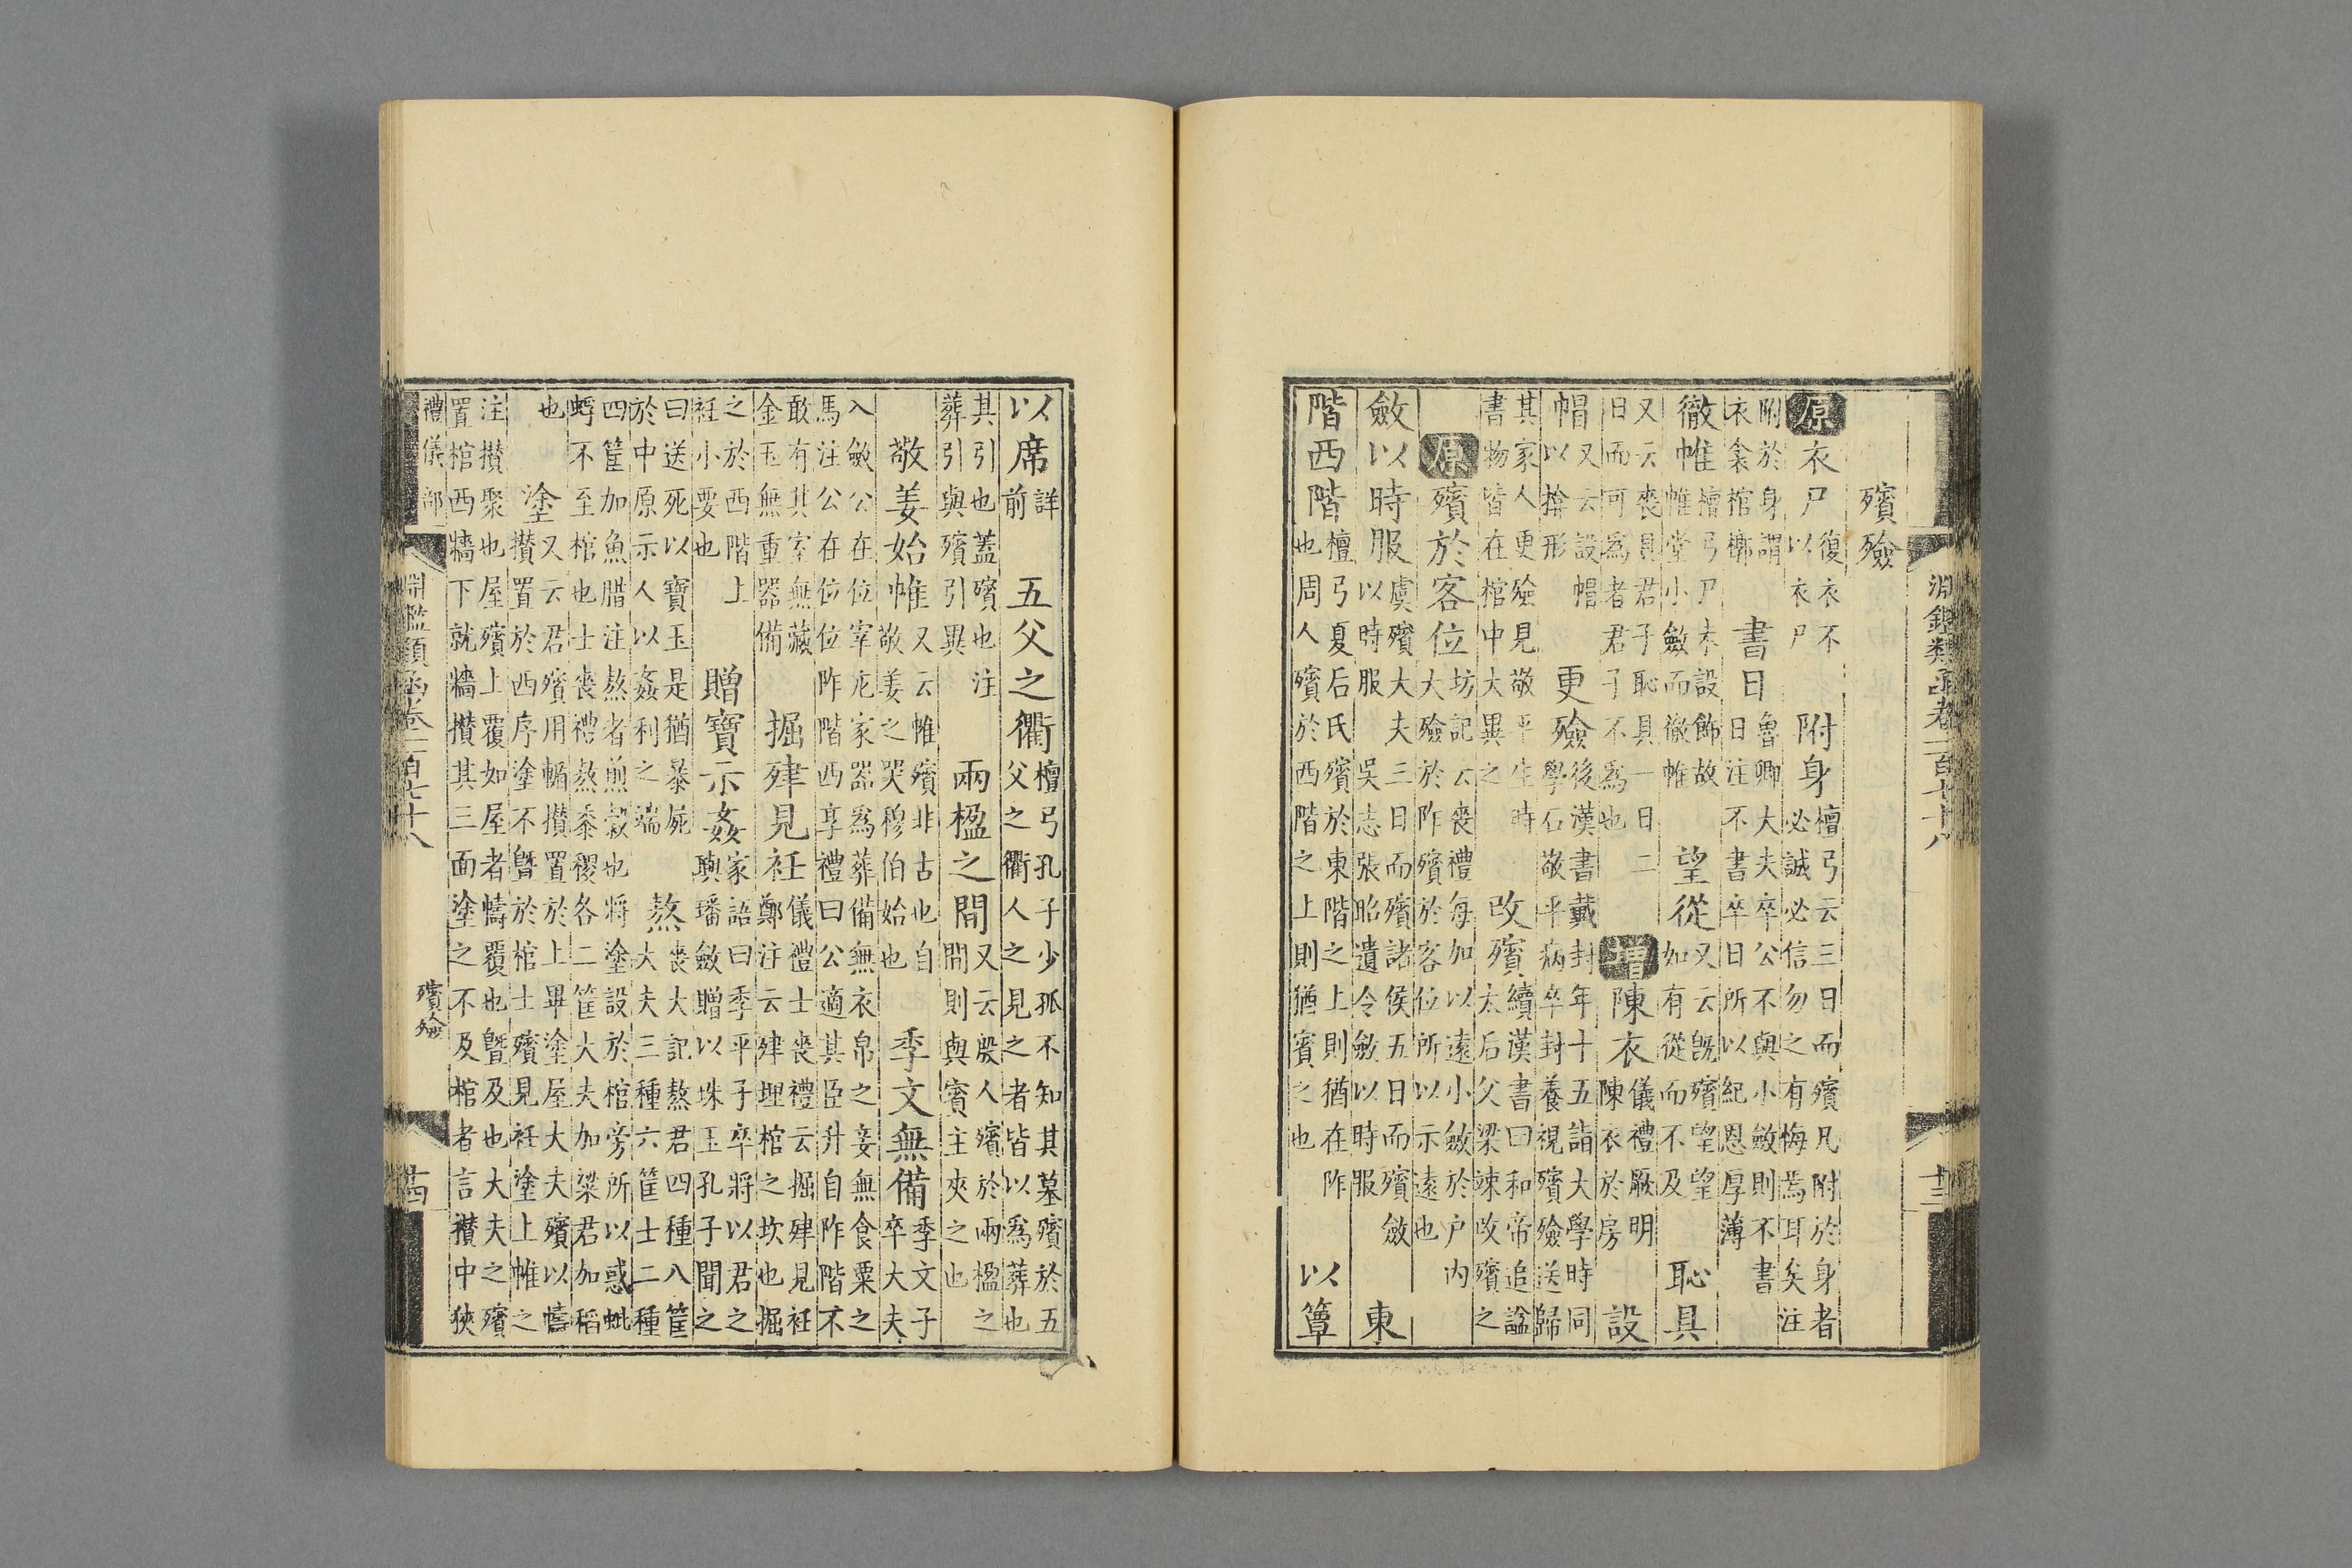 淵鑑類函卷一百七十八 十三
殯殮
原衣尸復衣不以衣尸附身檀弓云三日而殯凡附於身者必誠必信勿之有悔焉耳矣注
附於身謂衣衾棺槨書日魯卿大夫卒公不與小斂則不書日注不書卒日所以紀恩厚薄
徹帷檀弓尸未設飾故帷堂小斂而徹帷望從又云旣殯望望如有從而不及恥具
又云喪具君子恥具一日二日而可爲者君子不爲也增陳衣儀禮厥明陳衣於房設
帽又云設帽以揜形更殮後漢書戴封年十五詣大學時同學石敬平病卒封養視殯殮送歸
其家人更殮見敬平生時書物皆在棺中大異之改殯續漢書曰和帝追諡太后父梁竦改殯之
原殯於客位坊記云喪禮每加以遠小斂於户内大殮於阼殯於客位所以示遠也
斂以時服虞殯大夫三日而殯諸侯五日而殯斂以時服吳志張昭遺令斂以時服東
階西階檀弓夏后氏殯於東階之上則猶在阼也周人殯於西階之上則猶賓之也以簟
以席詳前五父之衢檀弓孔子少孤不知其墓殯於五父之衢人之見之者皆以爲葬也
其引也蓋殯也注葬引與殯引異兩楹之間又云殷人殯於兩楹之間則與賓主夾之也
敬姜始帷又云帷殯非古也自敬姜之哭穆伯始也季文無備季文子卒大夫
入斂公在位宰庀家器爲葬備無衣帛之妾無食粟之馬注公在位位阼階西享禮曰公適其臣升自阼階不
敢有其室無藏金玉無重器備掘肂見衽儀禮士喪禮云掘肂見衽鄭注云肂埋棺之坎也掘
之於西階上衽小要也贈寶示姦家語曰季平子卒將以君之璵璠斂贈以珠玉孔子聞之
曰送死以寶玉是猶暴屍於中原示人以姦利之端熬喪大記熬君四種八筐大夫三種六筐士二種
四筐加魚腊注熬者煎穀也將塗設於棺旁所以惑蚍蜉不至棺也士喪禮熬黍稷各二筐大夫加粱君加稻
也塗又云君殯用輴攅置於上畢塗屋大夫殯以幬攅置於西序塗不曁於棺士殯見衽塗上帷之
注攅聚也屋殯上覆如屋者幬覆也曁及也大夫之殯置棺西牆下就牆攅其三面塗之不及棺者言攅中狹
禮儀部 淵鑑類函卷一百七十八 殯殮 十四